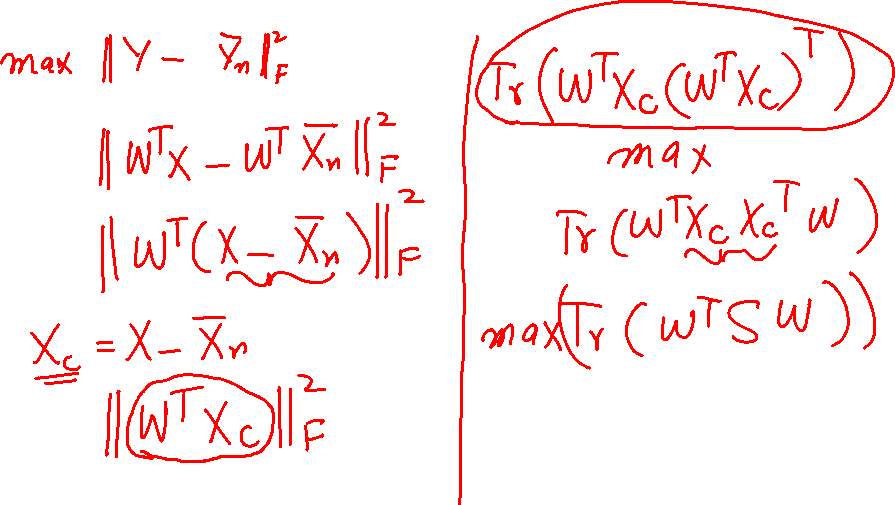 max ‖Y - Y̅n‖²F
‖WᵀX - Wᵀ X̅n‖²F
‖Wᵀ(X - X̅n)‖²F
Xc = X - X̅n
‖Wᵀ Xc‖²F
Tr(WᵀXc(WᵀXc)ᵀ)
max
Tr(WᵀXc Xcᵀ W)
max(Tr(WᵀS W))